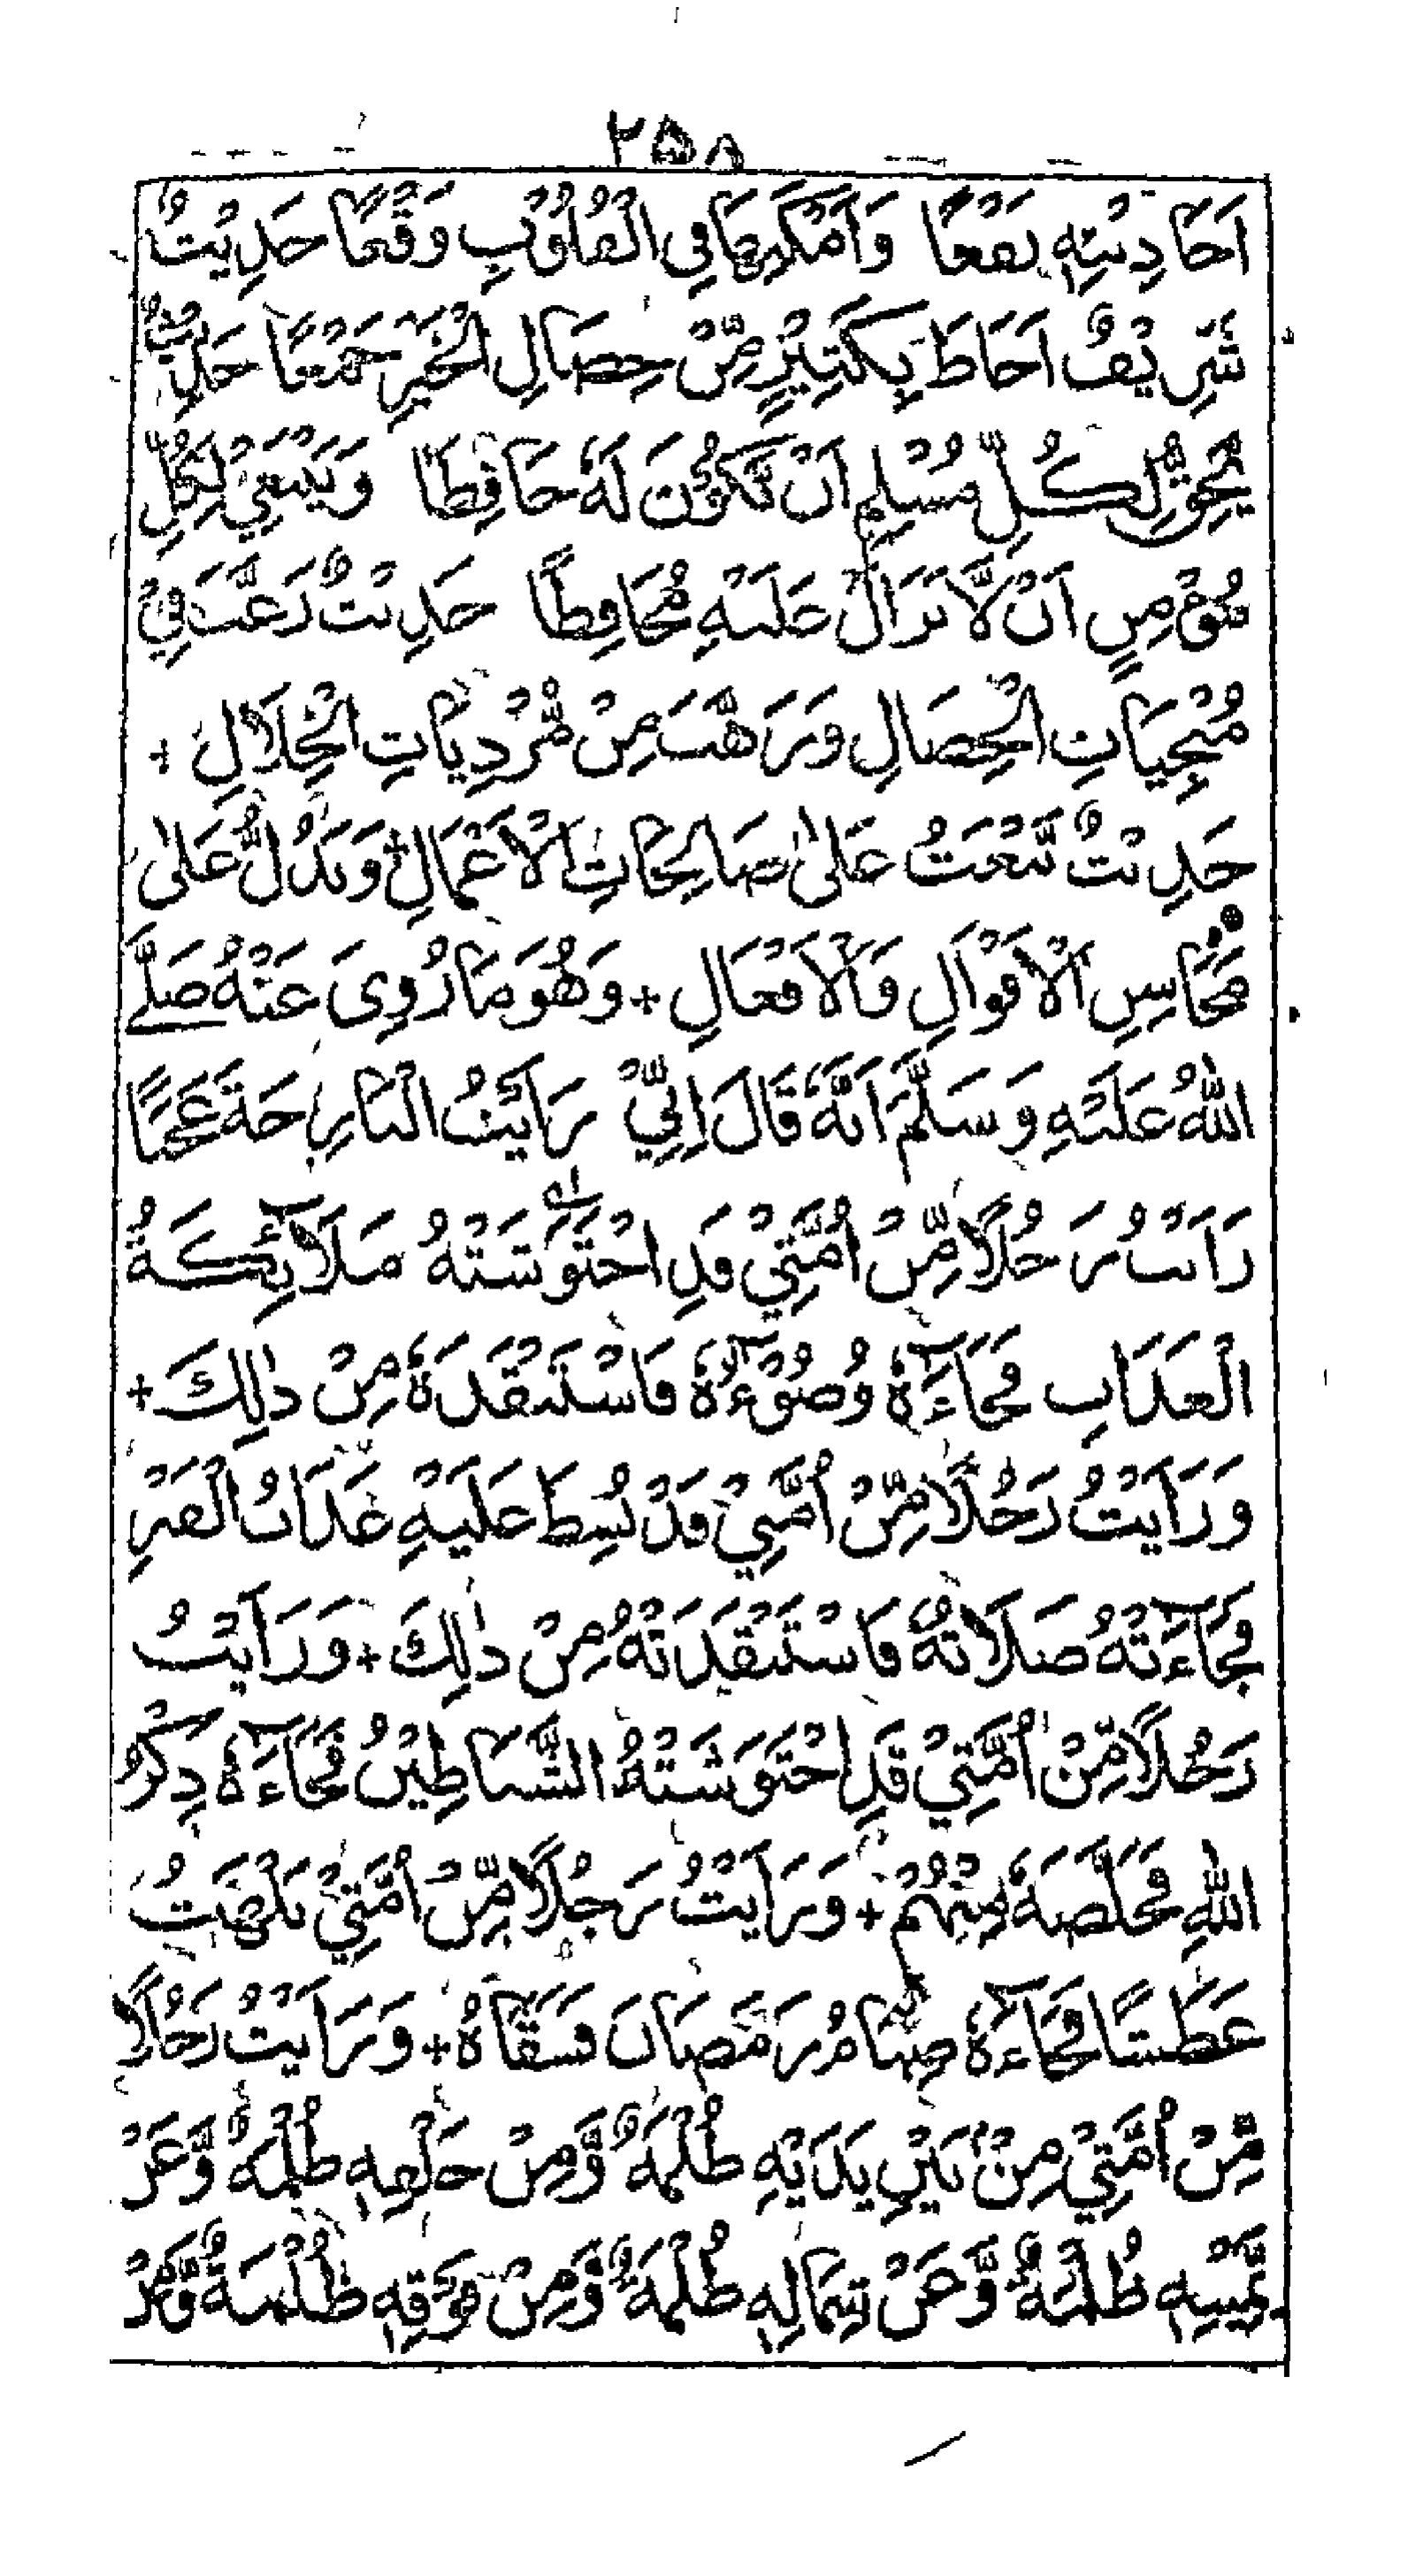 ٢٥٨
اَحَادِيْثِهٖ نَفْعًا وَاَمْكَنِهَا فِي الْقُلُوْبِ وَقْعًا حَدِيْثٌ
شَرِيْفٌ اَحَاطَ بِكَثِيْرٍ مِّنْ خِصَالِ الْخَيْرِ جَمْعًا حَدِيْثٌ
يَّحِقُّ لِكُلِّ مُسْلِمٍ اَنْ يَّكُوْنَ لَهٗ حَافِظًا وَيَنْبَغِيْ لِكُلِّ
مُؤْمِنٍ اَنْ لَّا يَزَالَ عَلَيْهِ مُحَافِظًا حَدِيْثٌ رَغَّبَ فِيْ
مُنْجِيَاتِ الْخِصَالِ وَرَهَّبَ مِنْ مُّرْدِيَاتِ الْخِلَالِ +
حَدِيْثٌ يَّبْعَثُ عَلٰى صَالِحَاتِ الْاَعْمَالِ + وَيَدُلُّ عَلٰى
مَحَاسِنِ الْاَقْوَالِ وَالْاَفْعَالِ + وَهُوَ مَا رُوِيَ عَنْهُ صَلَّى
اللّٰهُ عَلَيْهِ وَسَلَّمَ اَنَّهٗ قَالَ اِنِّيْ رَاَيْتُ الْبَارِحَةَ عَجَبًا
رَاَيْتُ رَجُلًا مِّنْ اُمَّتِيْ قَدِ احْتَوَشَتْهُ مَلَآئِكَةُ
الْعَذَابِ فَجَآءَهٗ وُضُوْٓءُهٗ فَاسْتَنْقَذَهٗ مِنْ ذٰلِكَ +
وَرَاَيْتُ رَجُلًا مِّنْ اُمَّتِيْ قَدْ بُسِطَ عَلَيْهِ عَذَابُ الْقَبْرِ
فَجَآءَتْهُ صَلَاتُهٗ فَاسْتَنْقَذَتْهُ مِنْ ذٰلِكَ + وَرَاَيْتُ
رَجُلًا مِّنْ اُمَّتِيْ قَدِ احْتَوَشَتْهُ الشَّيَاطِيْنُ فَجَآءَهٗ ذِكْرُ
اللّٰهِ فَخَلَّصَهٗ مِنْهُمْ + وَرَاَيْتُ رَجُلًا مِّنْ اُمَّتِيْ يَلْهَثُ
عَطَشًا فَجَآءَهٗ صِيَامُ رَمَضَانَ فَسَقَاهُ + وَرَاَيْتُ رَجُلًا
مِّنْ اُمَّتِيْ مِنْ بَيْنِ يَدَيْهِ ظُلْمَةٌ وَّمِنْ خَلْفِهٖ ظُلْمَةٌ وَّعَنْ
يَّمِيْنِهٖ ظُلْمَةٌ وَّعَنْ شِمَالِهٖ ظُلْمَةٌ وَّمِنْ فَوْقِهٖ ظُلْمَةٌ وَّمِنْ